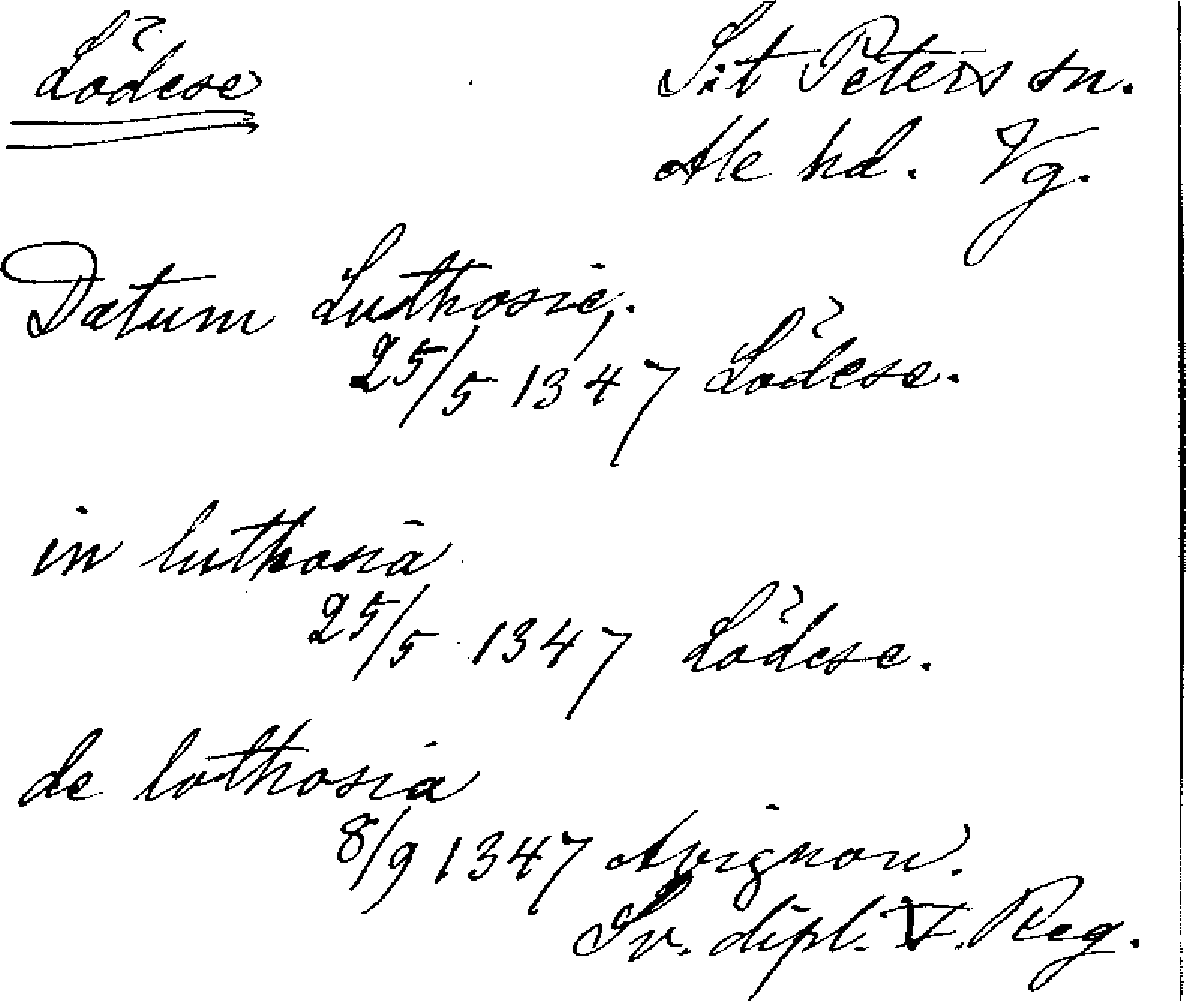 Lödese
S:t Peters sn.
Ale hd. Vg.
Datum Luthosie,
25/5 1347 Lödese.
in luthosia
25/5 1347 Lödese.
de lothosia
8/9 1347 Avignon.
Sv. dipl. V. Reg.